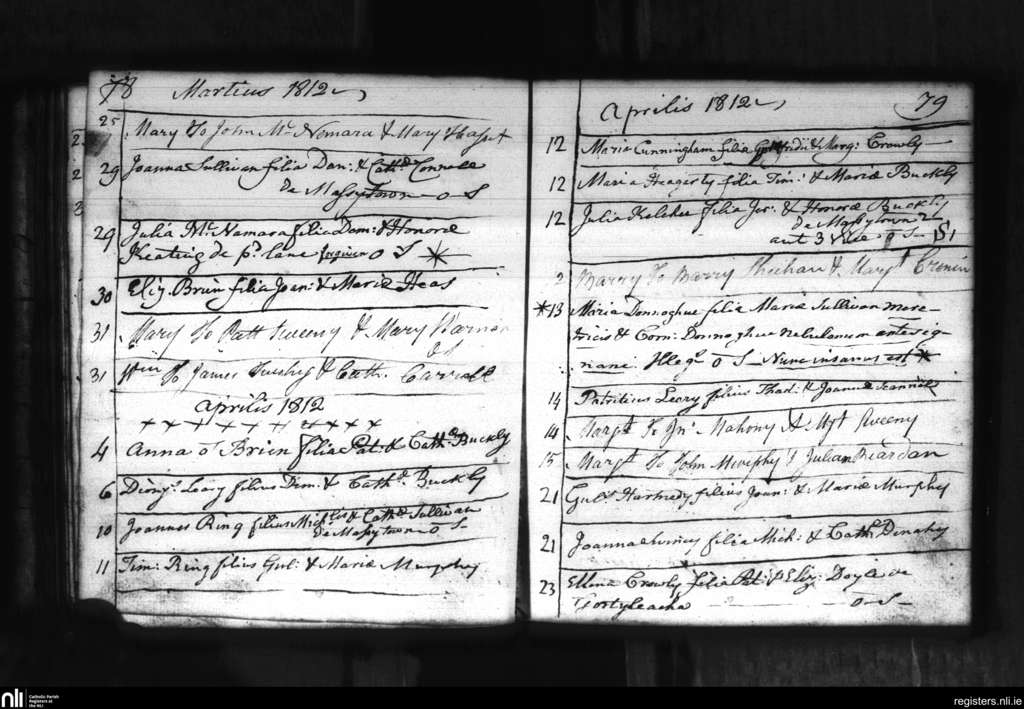 78 Martius 1812
25 Mary To John Mc Nemara & Mary
29 Joanna Sullivan filia Dan: & Cath. Connell
de Massytown o S
29 Julia Mc Namara filia Dom: & Honoræ
Keating de pr. lane forgiven o S *
30 Eliz. Brien filia Joan: & Mariæ Heas
31 Mary To Patt Sweeny & Mary Warner
31 Wm To James & Cath. Carroll
Aprilis 1812
+ + + + + + + + +
4 Anna o Brien filia Pat. & Cath. Buckly
6 Dionys. Leary filius Dim: & Cath. Buckly
10 Joannes Ring filius Mich.lis & Cath. Sullivan
de Massytown o S
11 Tim: Ring filius Gul: & Mariæ Murphy
Aprilis 1812 79
12 Maria Cunningham filia & Marg: Crowly
12 Maria Heagerty filia Tim: & Mariæ Buckly
12 Julia Kelehee filia Jer: & Honoræ Buckly
de Massytown
aut 3 o S
2 Barry To Barry Sheehan & Margt Cronin
*13 Maria Donnoghue filia Mariæ Sullivan mere-
tricis & Corn: Donnoghue Nebulonum antesig-
nani. o S Nunc insanus est *
14 Patritius Leary filius Thad: & Joannæ Scannell
14 Margt To Jno Mahony & Mgt Sweeny
15 Margt To John Murphy & Julian Reardan
21 Gul. Hartnedy filius Joan: & Mariæ Murphy
21 Joanna filia Mich: & Cath: Dinahy
23 Ellina Crowly filia Pat: & Eliz: Doyle de
Gortyleacha o S
nli Catholic Parish
Registers at
the NLI
registers.nli.ie